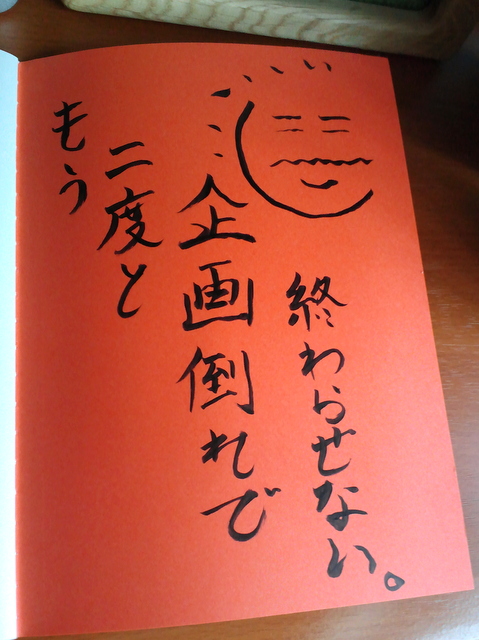 もう
二度と
企画倒れで
終わらせない。